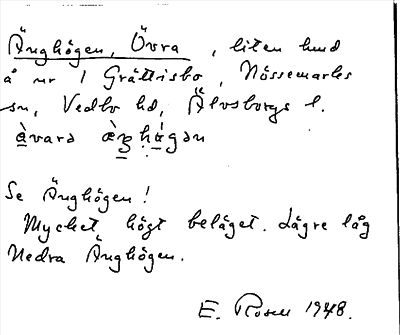 Änghögen, Övra, liten lund
å nr 1 Gråttisbo, Nössemarks
sn, Vedbo hd, Älvsborgs l.
Se Änghögen!
Mycket högt beläget. Lägre låg
Nedra Änghögen.
E. Rosen 1948.